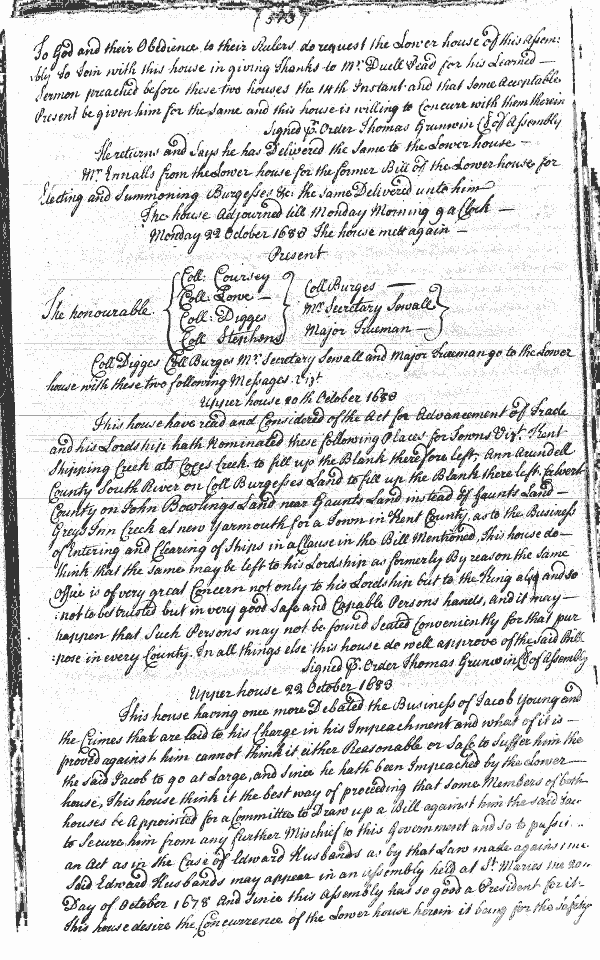 (573)
To God and their Obedience to their Rulers do request the Lower house of this Assem:
:bly to Join with this house in giving Thanks to Mr. Duell Pead for his Learned —
Sermon preached before these two houses the 14th Instant and that Some Acceptable
Present be given him for the Same and this house is willing to Concure with them therein
Signed p. Order Thomas Grunwin Cl. of Assembly
He returns and Says he has Delivered the Same to the Lower house —
Mr. Ennalls from the Lower house for the former Bill of the Lower house for
Electing and Summoning Burgesses &c: the same Delivered unto him
The house Adjourned till Monday Morning 9 a Clock —
Monday 22 October 1683 The house mett again —
Present
The honourable
Coll: Coursey
Coll: Lowe —
Coll: Digges
Coll Stephens
Coll Burges —
Mr. Secretary Sewall
Major Trueman —
Coll Digges Coll Burges Mr. Secretary Sewall and Major Trueman go to the Lower
house with these two following Messages. Vizt.
Upper house 20th October 1683
This house have read and Considered of the Act for Advancement of Trade
and his Lordship hath Nominated these following Places for Towns Vizt. Kent
Shipping Creek als Coxes Creek to fill up the Blank therefore left, Ann Arundell
County South River on Coll Burgesses Land to fill up the Blank there left. Calvert
County on John Bowlings Land near Gaunts Land instead of Gaunts Land —
Greys Inn Creek as new Yarmouth for a Town in Kent County, as to the Business
of Entering and Clearing of Ships in a Clause in the Bill Mentioned, This house do —
think that the same may be left to his Lordship as formerly By reason the Same
Office is of very great Concern not only to his Lordship but to the King also and so
:not to be trusted but in very good Safe and Capable Persons hands, and it may —
happen that Such Persons may not be found Seated Conveniently for that pur
:pose in every County. In all things else this house do well approve of the said Bill
Signed p. Order Thomas Grunwin Cl of Assembly
Upper house 22 October 1683
This house having once more Debated the Business of Jacob Young and
the Crimes that are laid to his Charge in his Impeachment and what of it is —
proved against him cannot think it either Reasonable or Safe to Suffer him the
the said Jacob to go at Large, and Since he hath been Impeached by the Lower —
house, This house think it the best way of proceeding that some Members of both
houses be Appointed for a Committee to Draw up a Bill against him the said Jac
to Secure him from any further Mischief to this Government and so to pass it
an Act as in the Case of Edward Husbands as by that Law made against the
Said Edward Husbands may appear in an Assembly held at St. Maries the 20
Day of October 1678 And Since this Assembly has so good a President for it
This house desire the Concurrence of the Lower house herein it being for the Safety